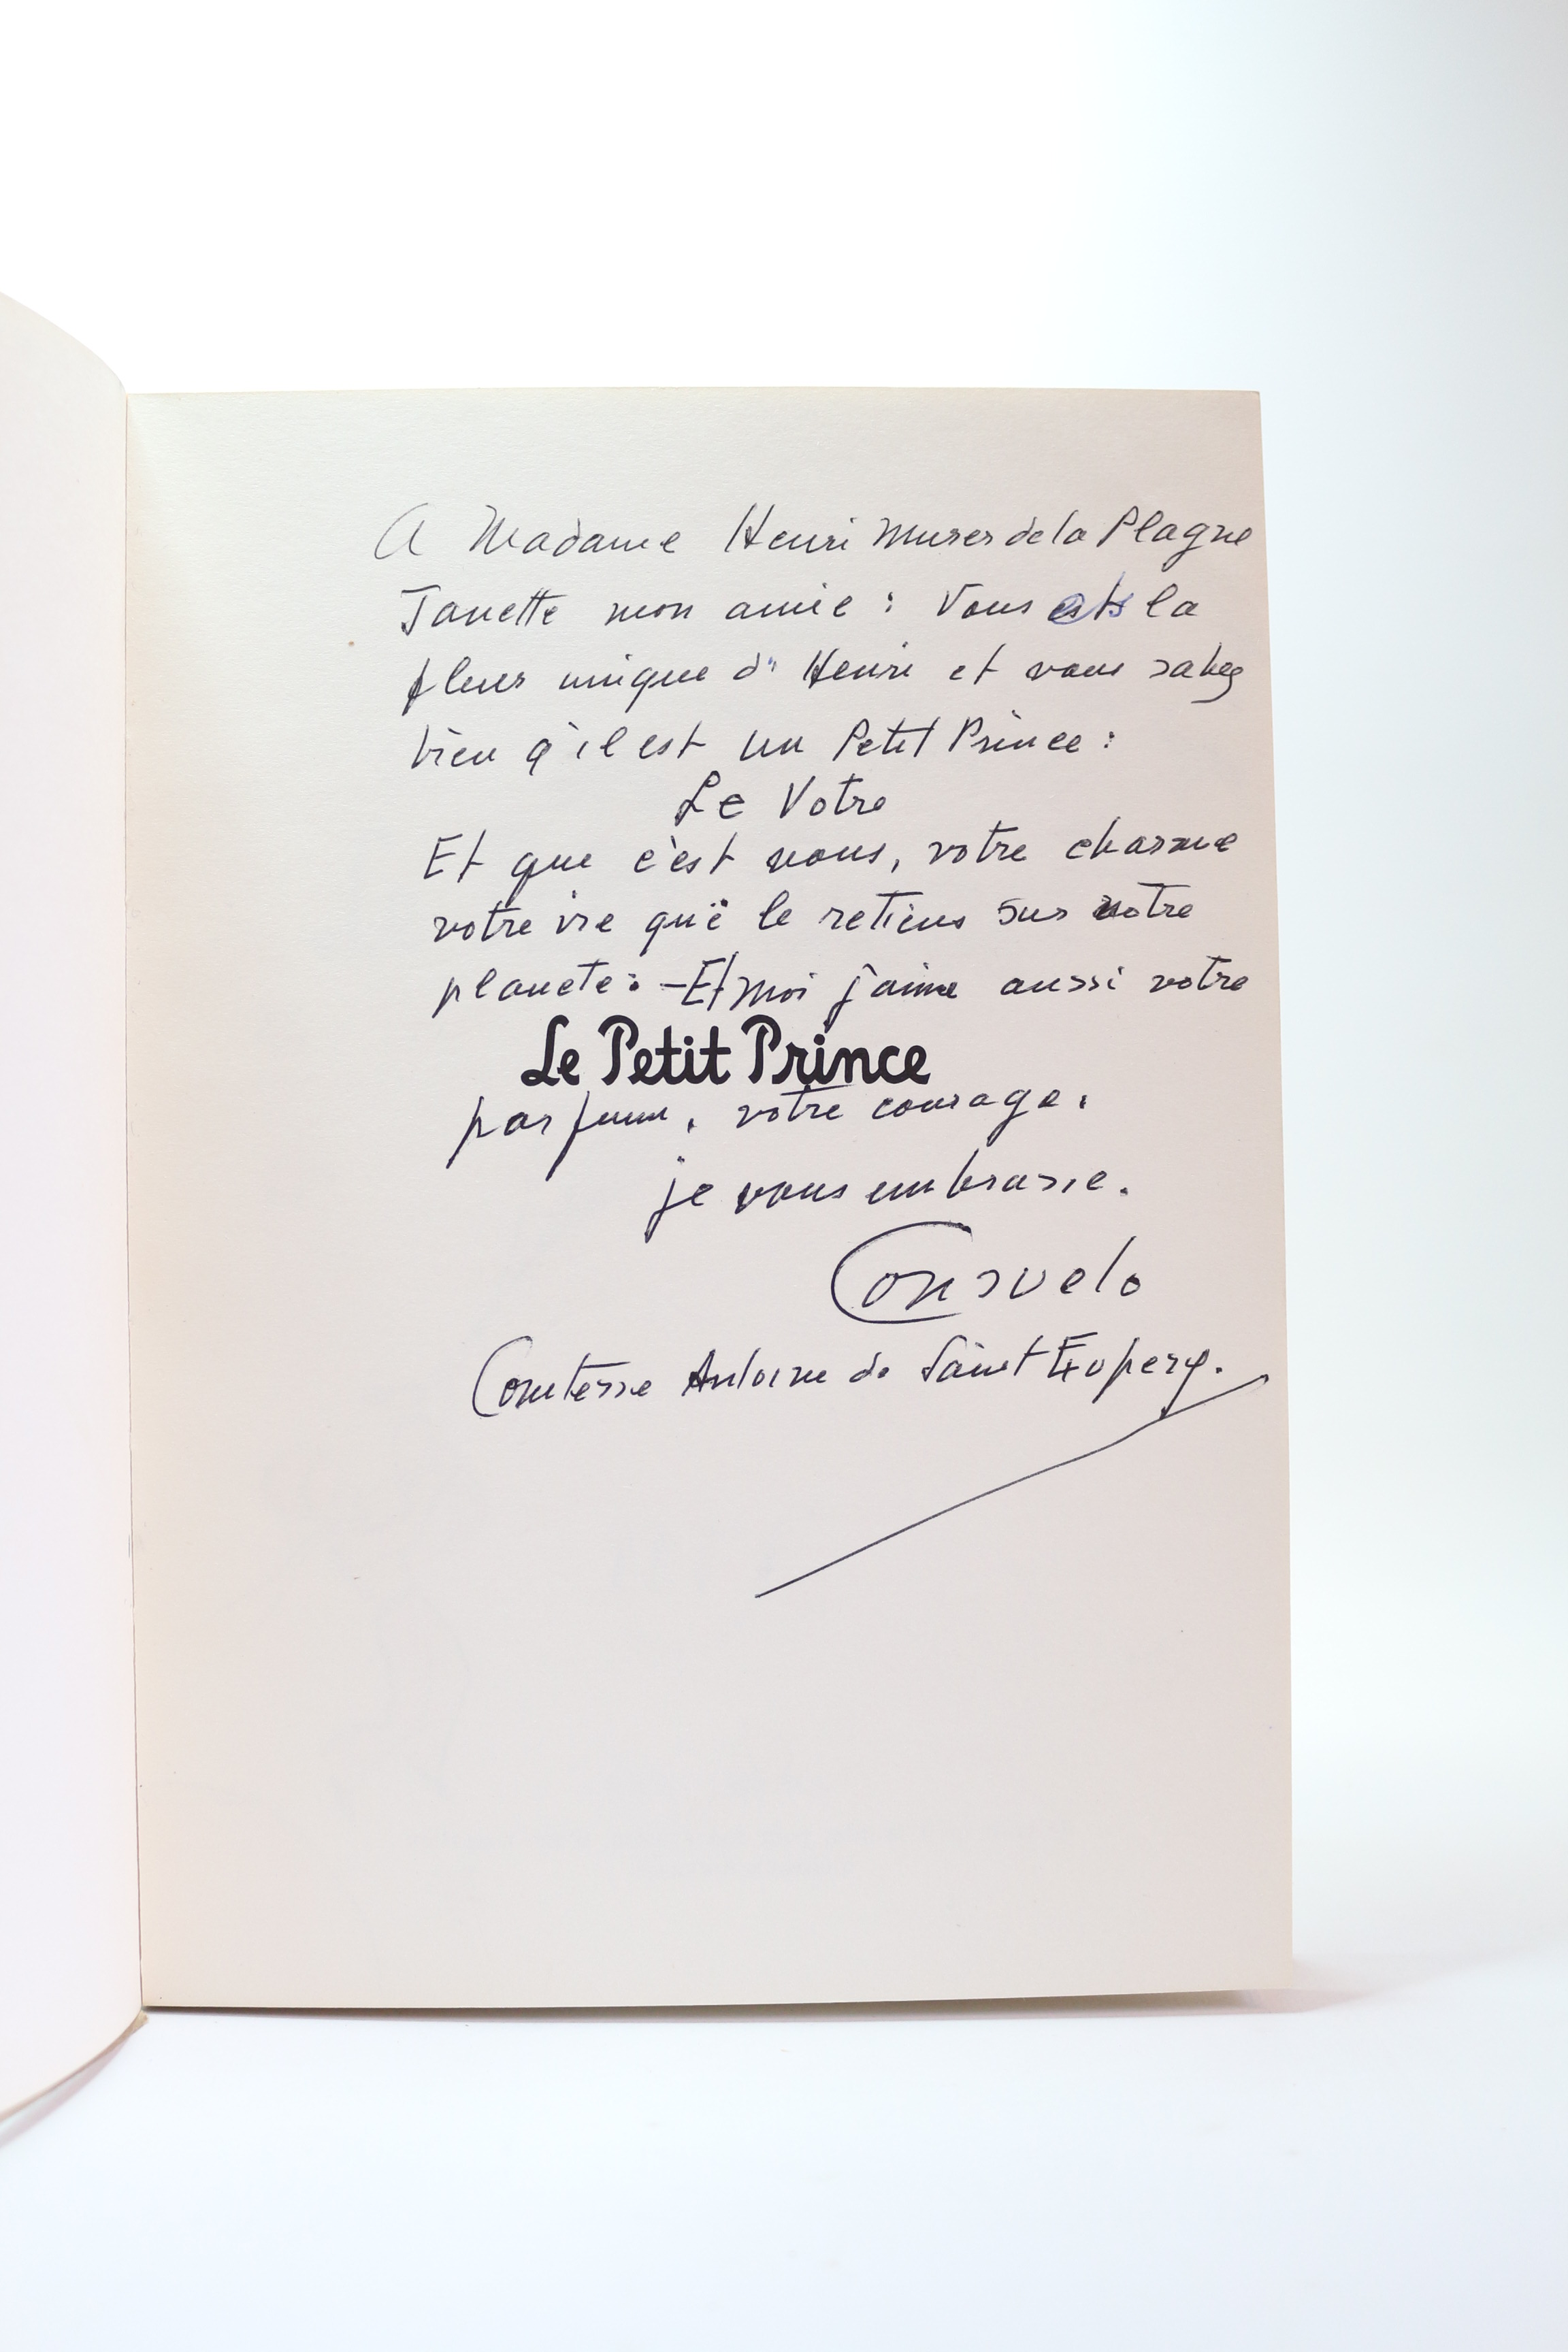 A Madame Henri Muner de la Plagne
Janette mon amie : Vous ets la
fleur unique d'Henri et vous savez
bien q'il est un Petit Prince :
Le Votre
Et que c'est vous, votre charme
votre vie que le retiens sur votre
planete : - Et moi j'aime aussi votre
Le Petit Prince
parfum, votre courage.
je vous embrasse.
Consuelo
Comtesse Antoine de Saint Exupery.